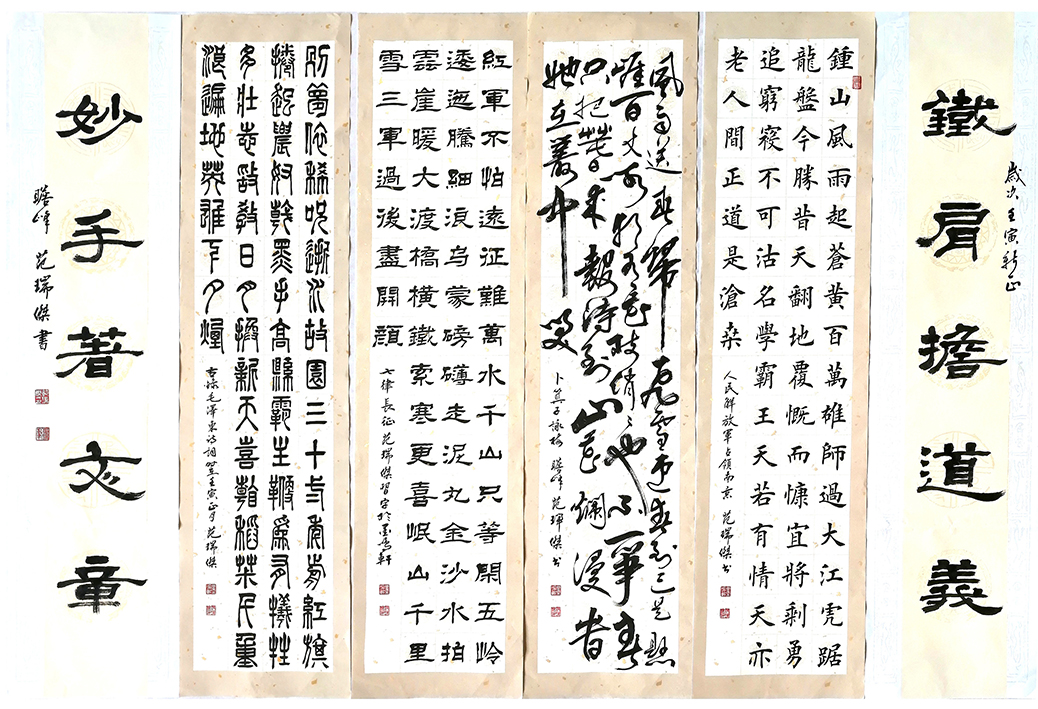 歲次壬寅新正
鐵肩擔道義
鍾山風雨起蒼黃百萬雄師過大江虎踞
龍盤今勝昔天翻地覆慨而慷宜將剩勇
追窮寇不可沽名學霸王天若有情天亦
老人間正道是滄桑
人民解放軍占領南京 范瑞傑書
風雨送春歸飛雪迎春到已是懸
崖百丈冰猶有花枝俏俏也不爭春
只把春來報待到山花爛漫時
她在叢中笑
卜算子詠梅 瞻峰 范瑞傑書
紅軍不怕遠征難萬水千山只等閑五岭
逶迤騰細浪烏蒙磅礴走泥丸金沙水拍
雲崖暖大渡橋橫鐵索寒更喜岷山千里
雪三軍過後盡開顏
七律長征 范瑞傑習字於墨香軒
別夢依稀咒逝川故園三十二年前紅旗
捲起農奴戟黑手高懸霸主鞭為有犧牲
多壯志敢教日月換新天喜看稻菽千重
浪遍地英雄下夕煙
毛澤東詩詞 壬寅正月 范瑞傑
妙手著文章
瞻峰 范瑞傑書